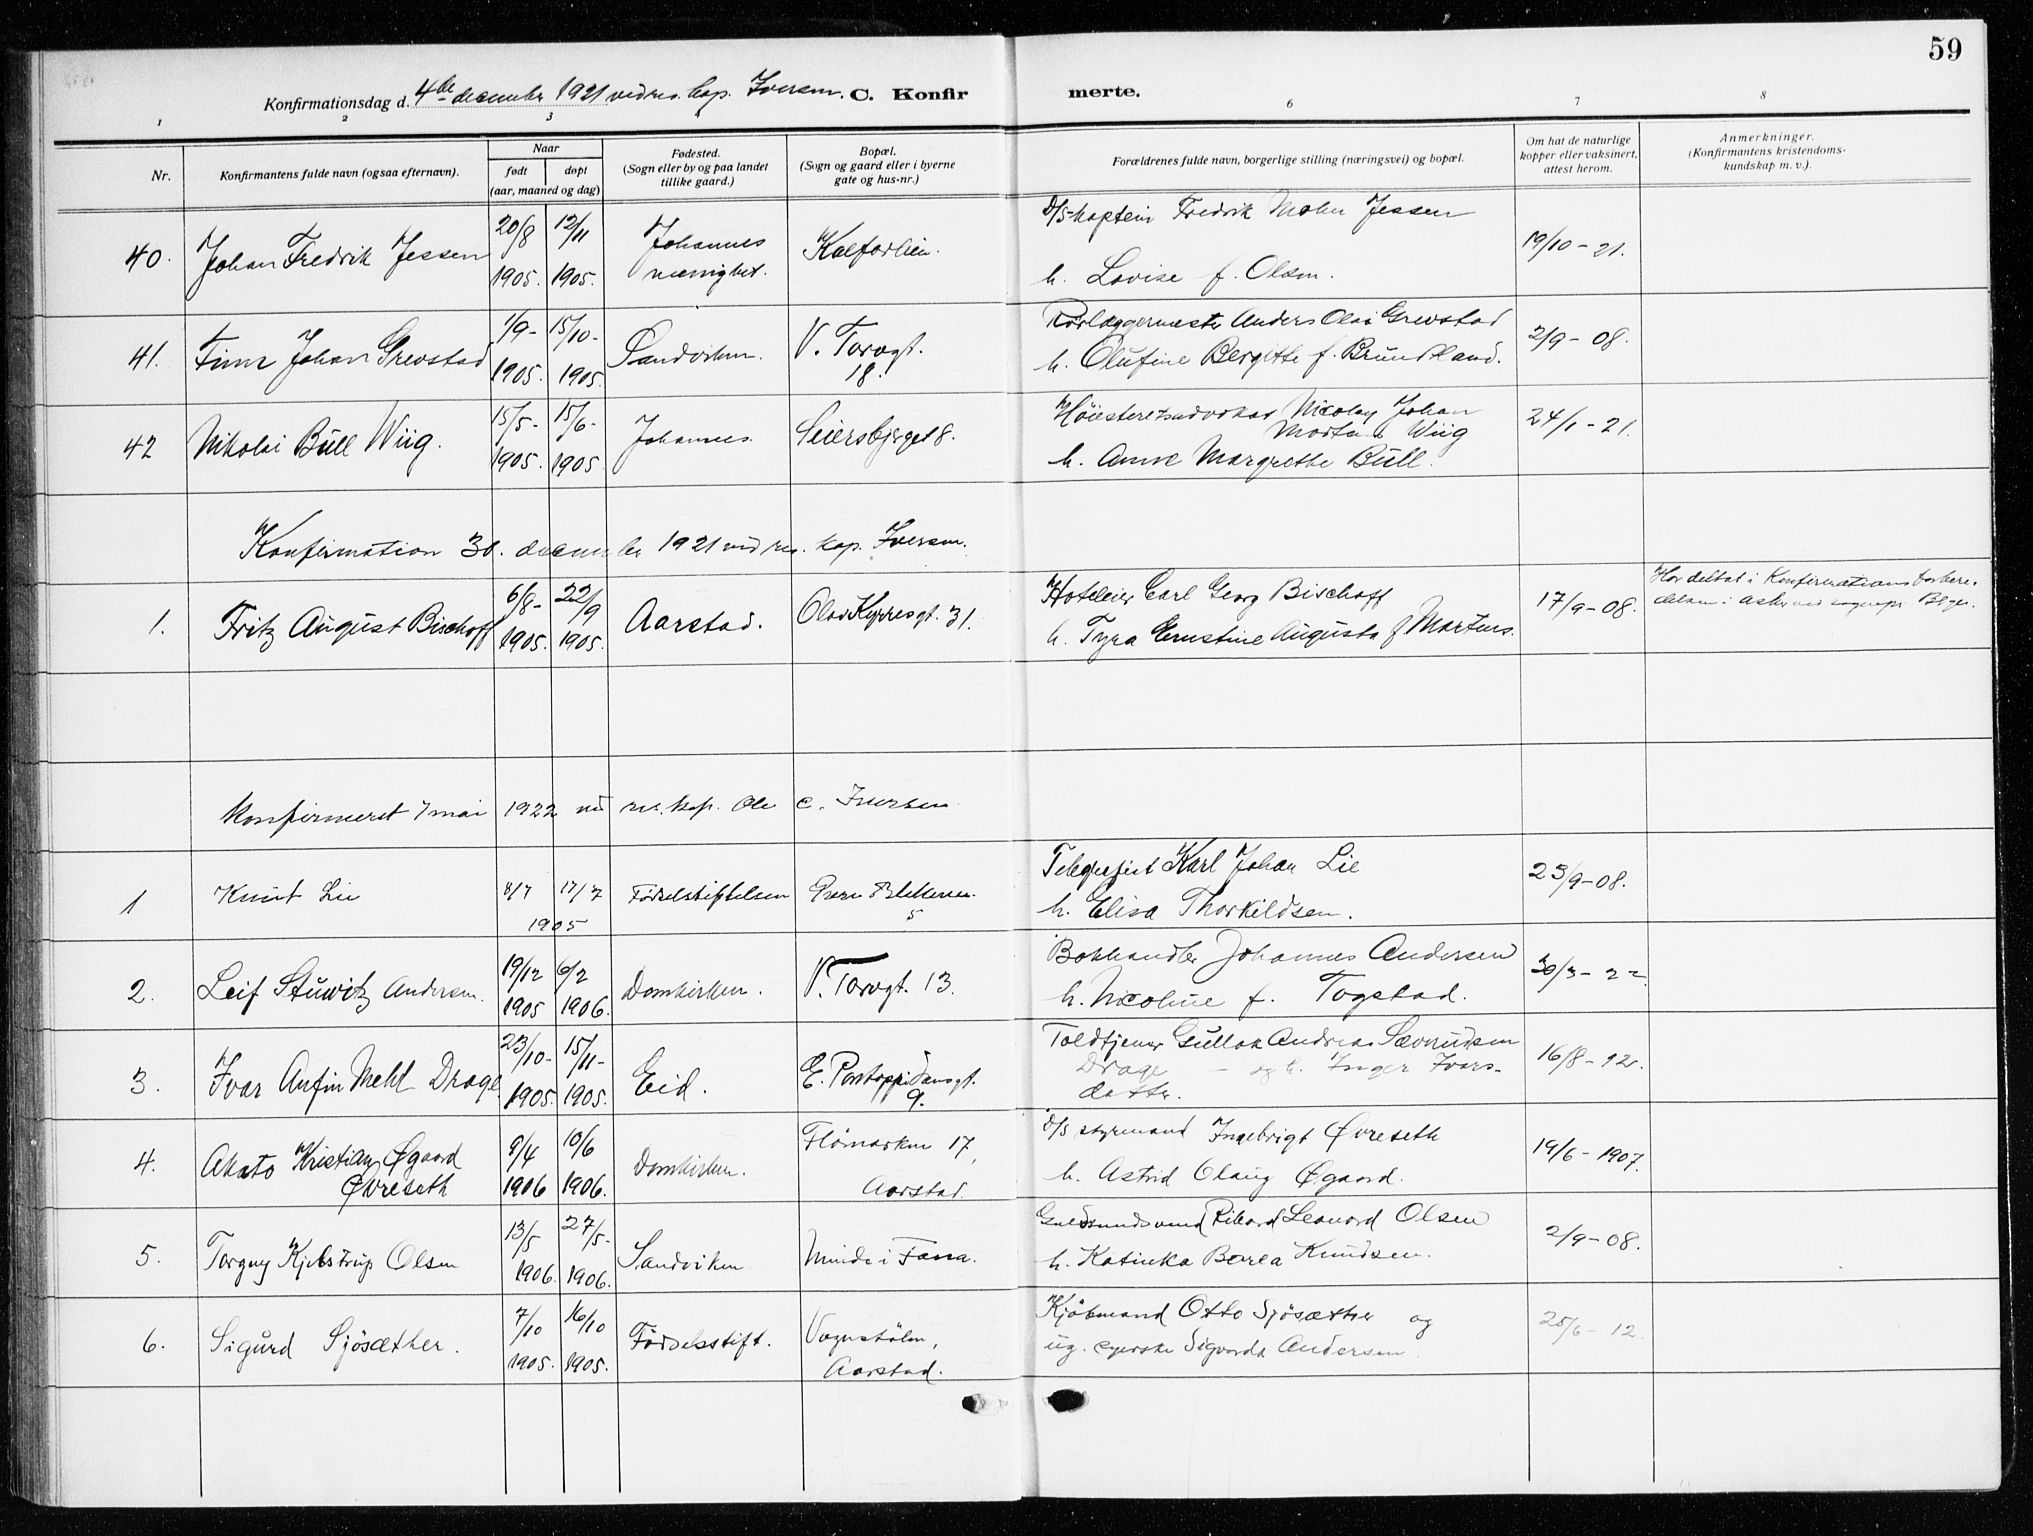 59
Konfirmationsdag d. 4de december 1921 ved res. kap. Iversen. C. Konfir merte.
1 2 3 4 6 7 8
Nr. Konfirmantens fulde navn (ogsaa efternavn). Naar født døpt (aar, maaned og dag) Fødested. (Sogn eller by og paa landet tillike gaard.) Bopæl. (Sogn og gaard eller i byerne gate og hus-nr.) Forældrenes fulde navn, borgerlige stilling (næringsvei) og bopæl. Om hat de naturlige kopper eller vaksinert, attest herom. Anmerkninger. (Konfirmantens kristendoms-kundskap m. v.).
40. Johan Fredrik Jessen 20/8 1905. 12/11 1905. Johannes menighet. Kalfarlien. D/S-kaptein Fredrik Mohn Jessen
h. Lovise f. Olsen. 19/10-21.
41. Finn Johan Grevstad 1/9- 1905. 15/10- 1905. Sandviken. V. Torvgt. 18. Rørlæggermester Anders Olai Grevstad
h. Olufine Bergitte f. Brundtland. 2/9-08.
42 Nikolai Bull Wiig. 15/5- 1905. 15/6- 1905. Johannes. Seiersbjerget 8. Høiesteretsadvokat Nicolay Johan
Martens Wiig
h. Anne Margrethe Bull. 24/1-21.
Konfirmation 30. december 1921 ved res. kap. Iversen.
1. Fritz August Bischoff 6/8- 1905. 22/9 1905. Aarstad. Olav Kyrresgt. 31. Hoteleier Carl Georg Bischoff
h. Tyra Ernstine Augusta f Martens. 17/9-08. Har deltat i Konfirmationsforbere-
delsen i Asker ved sogнepr.
Konfirmeret 7 mai 1922 ved res. kap. Ole C. Iversen
1 Knut Lie 8/7 17/7 1905 Fødselsstiftelsen 5 Telegrafist Karl Johan Lie
h. Elisa Thorkildsen. 23/9-08.
2. Leif Stuwitz Andersen. 19/12 1905 6/2 1906. Domkirken. V. Torvgt. 13. Bokhandler Johannes Andersen
h. Nicoline f. Togstad. 30/3-22
3. Ivar Anfin Mehl Drage 23/10- 1905. 15/11- 1905. Eid. E. Pontoppidansgt. 9. Toldtjener Gullak Andreas Sævrudsen
Drage - og h. Inger Ivars-
datter. 16/8-12.
4. Akato Kristian Øgaard
Øvreseth 9/4 1906 10/6 1906. Domkirken. Flömarken 17,
Aarstad. D/S styrmand Ingebrigt Øvreseth
h. Astrid Olaug Øgaard. 19/6-1907.
5. Torgny Kjelstrup Olsen 13/5 1906. 27/5- 1906. Sandviken Minde i Fana. Guldsmedsvend Rikard Leonard Olsen
h. Katinka Borea Knudsen. 2/9-08.
6. Sigurd Sjösæther. 7/10 1905. 16/10 1905. Fødselsstift. Vognstølen,
Aarstad. Kjöbmand Otto Sjösæther og
ug. syerske Sigvarda Andersen. 25/6-12.